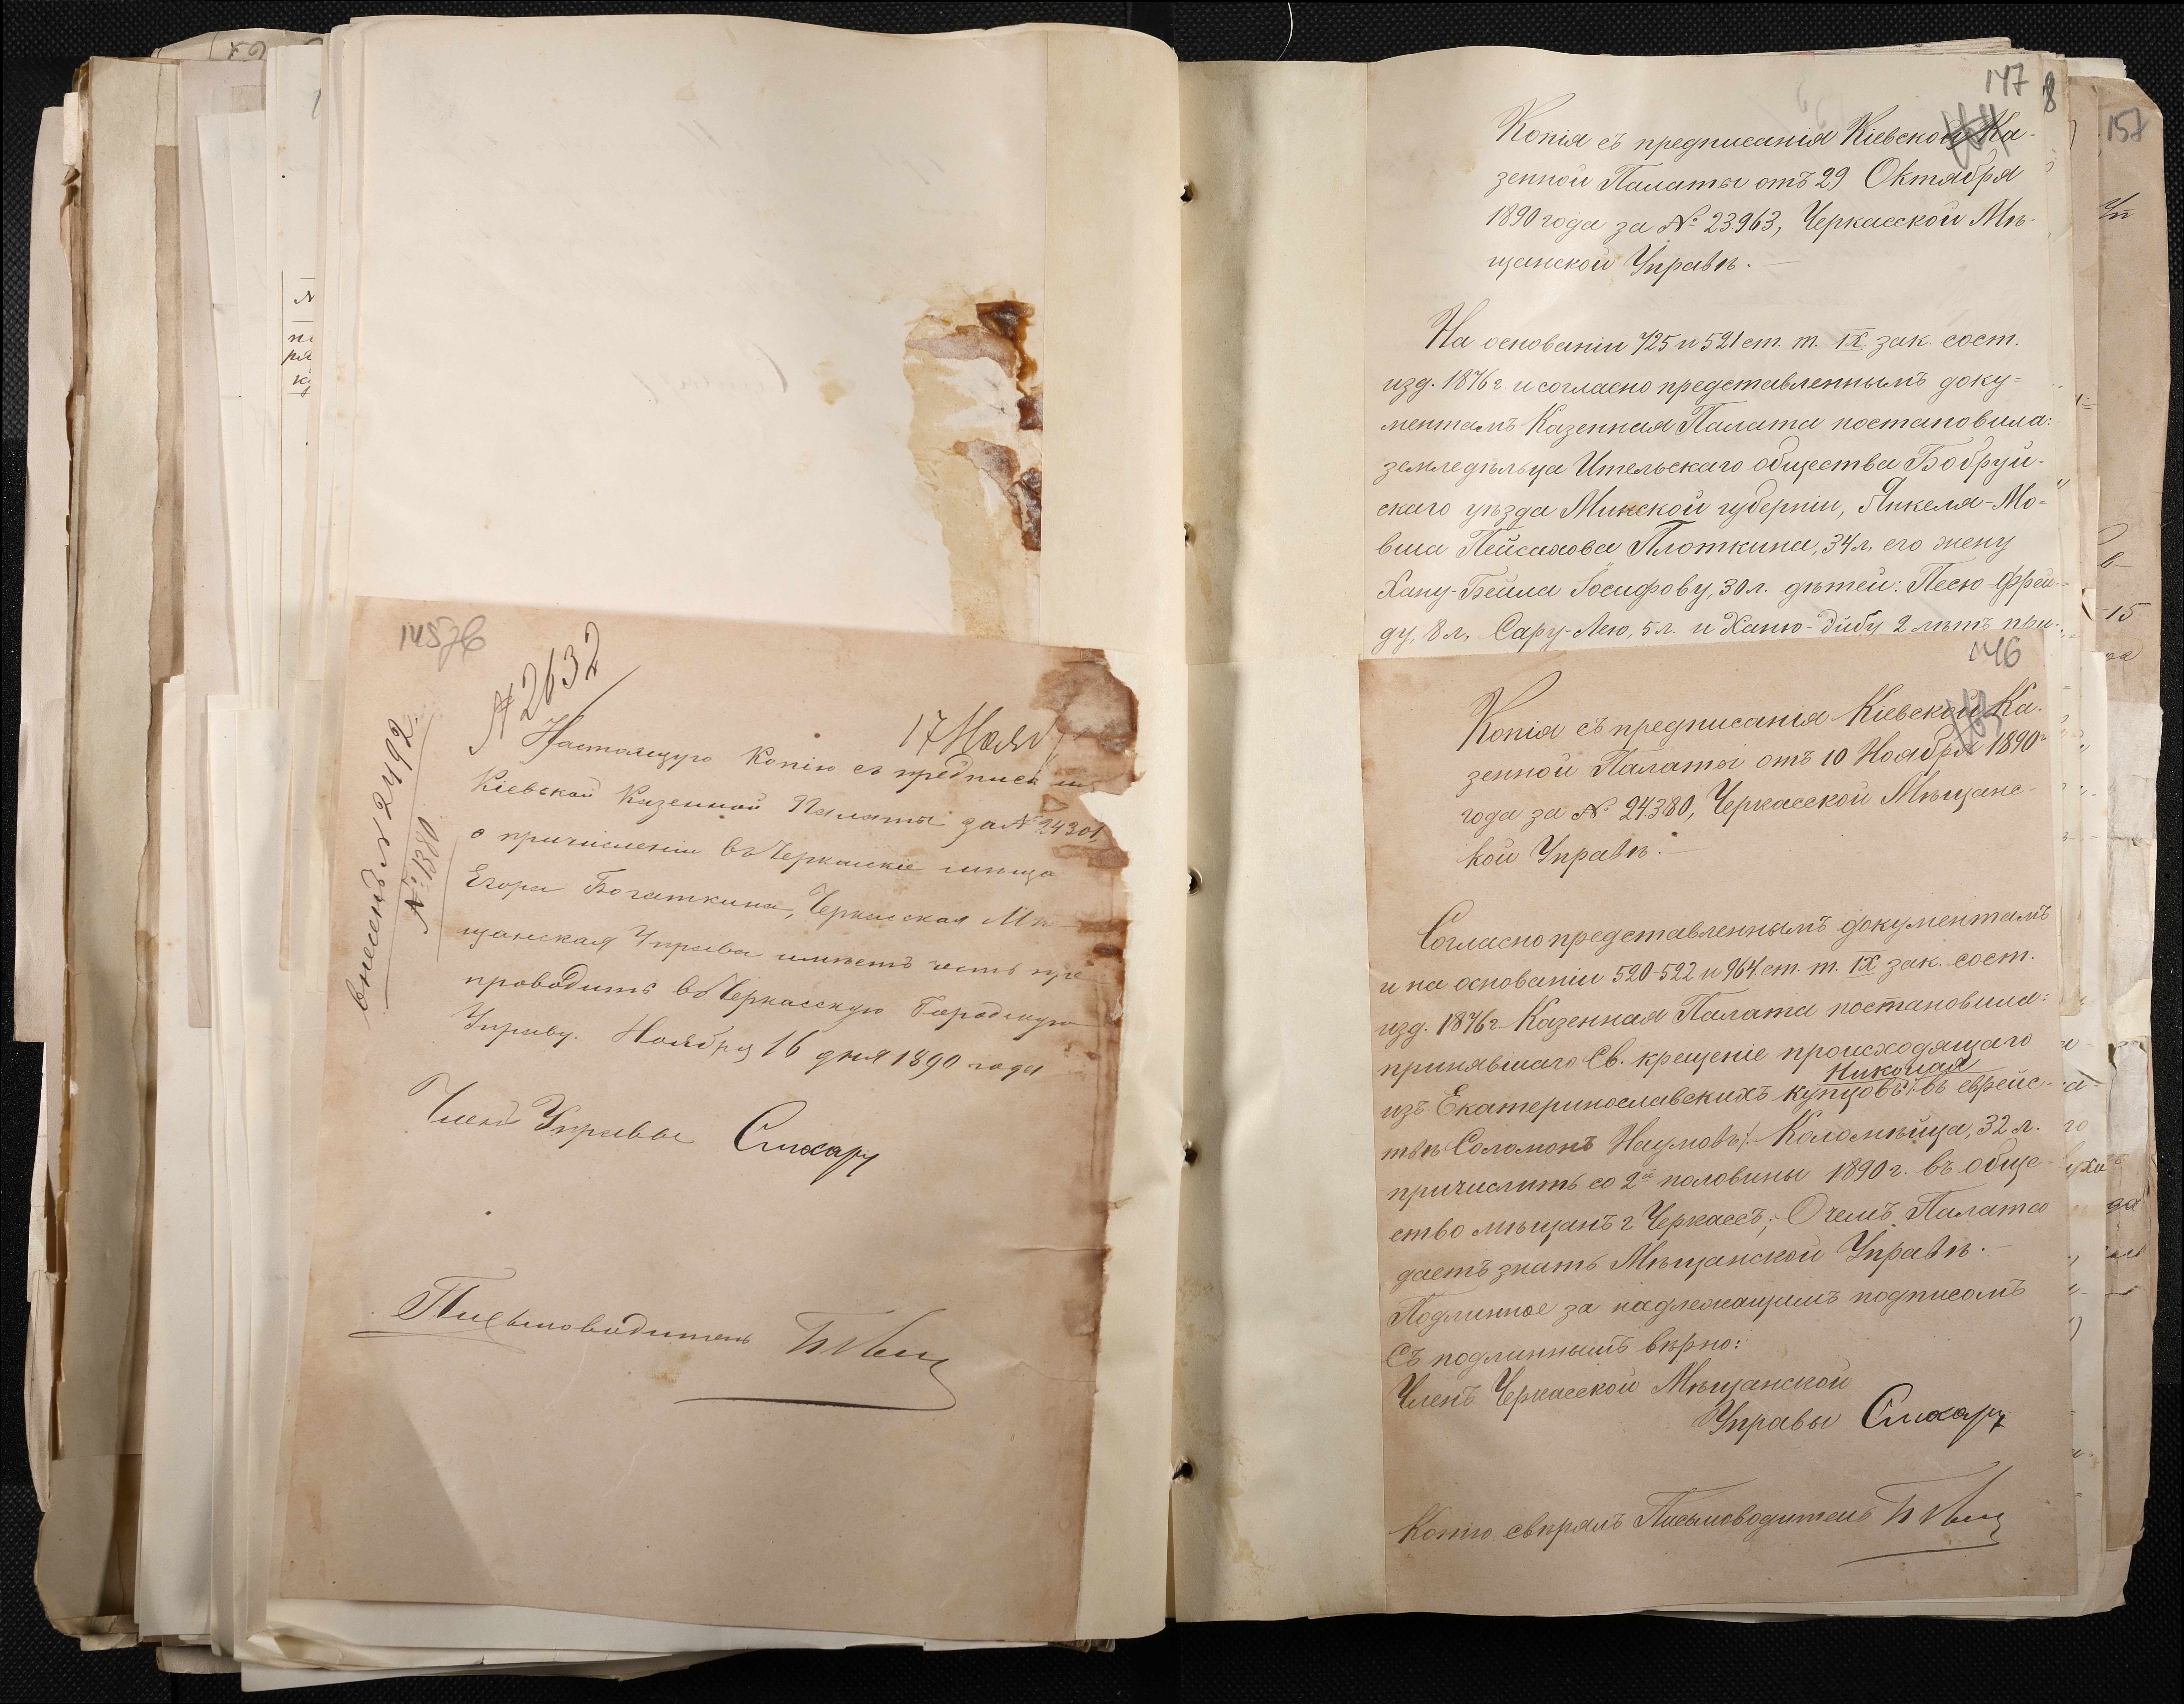 145об
№ 2632
17 Нояб
внесенъ № 2492.
№ 1380
Настоящую копію съ предписа
Кіевской Казенной Палаты за № 24301,
о причисленіи въ Черкаскіе мѣща
Егора Богаткина, Черкаская Мѣ
щанская Управа имѣетъ честь пре
проводить въ Черкасскую Городскую
Управу. Ноября 16 дня 1890 года
Членъ Управы
Письмоводитель
147
8
Копія съ предписанія Кіевской Ка-
зенной Палаты отъ 29 Октября
1890 года за № 23963, Черкасской Мѣ-
щанской Управѣ.
На основаніи 425 и 521 ст. т. IX зак. сост.
изд. 1876 г. и согласно представленнымъ доку-
ментамъ Казенная Палата постановила:
земледѣльца Ительскаго общества Бобруй-
скаго уѣзда Минской губерніи, Янкеля-Мо-
вша Пейсахова Плоткина, 34 л. его жену
Хану-Бейла Іосифову, 30 л. дѣтей: Песю-Фрей-
ду, 8 л, Сару-Лею, 5 л. и Ханю-Дибу 2 лѣтъ при-
146
Копія съ предписанія Кіевской Ка-
зенной Палаты отъ 10 Ноября 1890
года за № 24380, Черкасской Мѣщанс-
кой Управѣ.
Согласно представленнымъ документамъ
и на основаніи 520-522 и 964 ст. т. IX зак. сост.
изд. 1876 г. Казенная Палата постановила:
принявшаго Св. крещеніе происходящаго
Николая
изъ Екатеринославскихъ купцовъ /: въ еврейс-
твѣ Соломонъ Наумовъ /: Коломѣйца, 32 л.
причислить со 2й половины 1890 г. въ обще-
ство мѣщанъ г Черкассъ; О чемъ Палата
даетъ знать Мѣщанской Управѣ.
Подлинное за надлежащимъ подписомъ
Съ подлиннымъ вѣрно:
Членъ Черкасской Мѣщанской
Управы
Копію свѣрялъ Письмоводитель
157